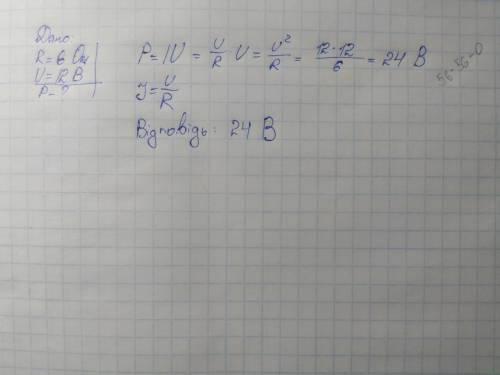 Дано:
R=6 Ом
U=12 В
P=?
P=IU = U/R U = U²/R = 12·12/6 = 24 В
J=U/R
Відповідь: 24 В